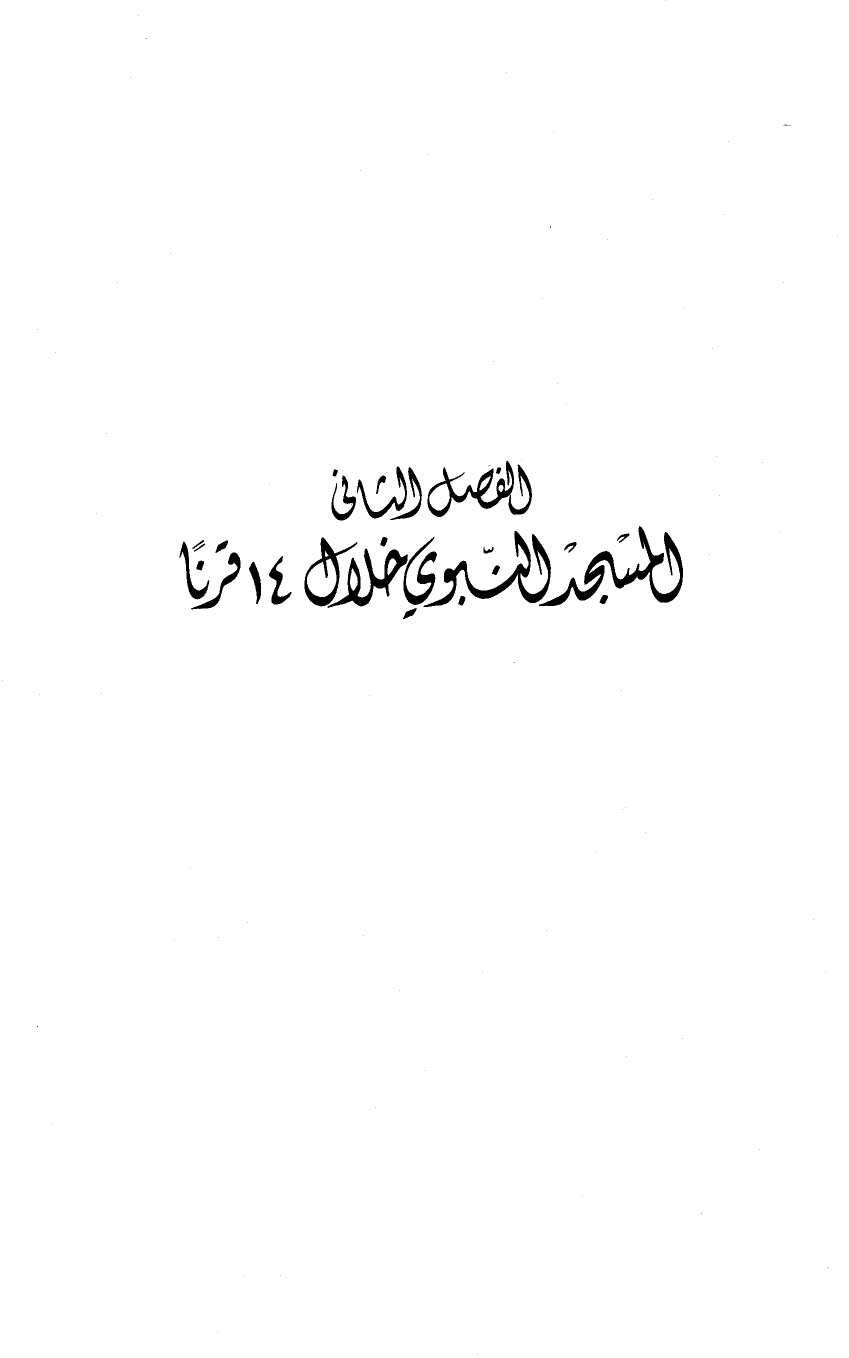 الفصل الثاني
المسْجدْ النّبوي خلال ١٤ قرنًا